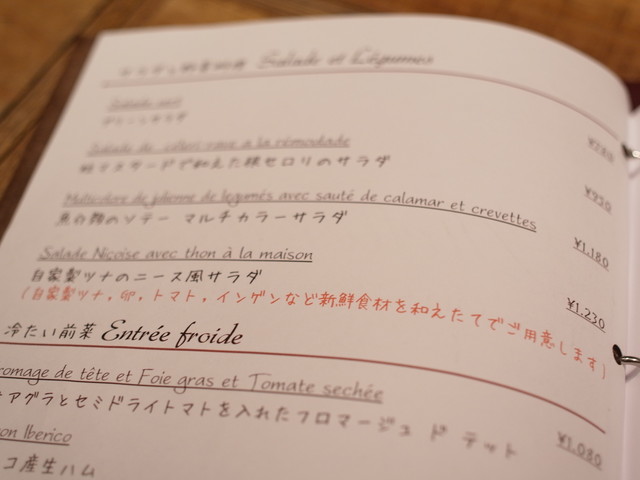 Salade et Légumes
Salade vert
グリーンサラダ
¥780
Salade de céleri-rave a la rémoulade
粒マスタードで和えた根セロリのサラダ
¥950
Multicolore de julienne de legumés avec sauté de calamar et crevettes
魚介類のソテー マルチカラーサラダ
¥1,180
Salade Niçoise avec thon à la maison
自家製ツナのニース風サラダ
¥1,230
(自家製ツナ,卵,トマト,インゲンなど新鮮食材を和えたてでご用意します)
冷たい前菜 Entrée froide
romage de tête et Foie gras et Tomate sechée
アグラとセミドライトマトを入れたフロマージュ ド テット
¥1,080
on Iberico
コ産生ハム